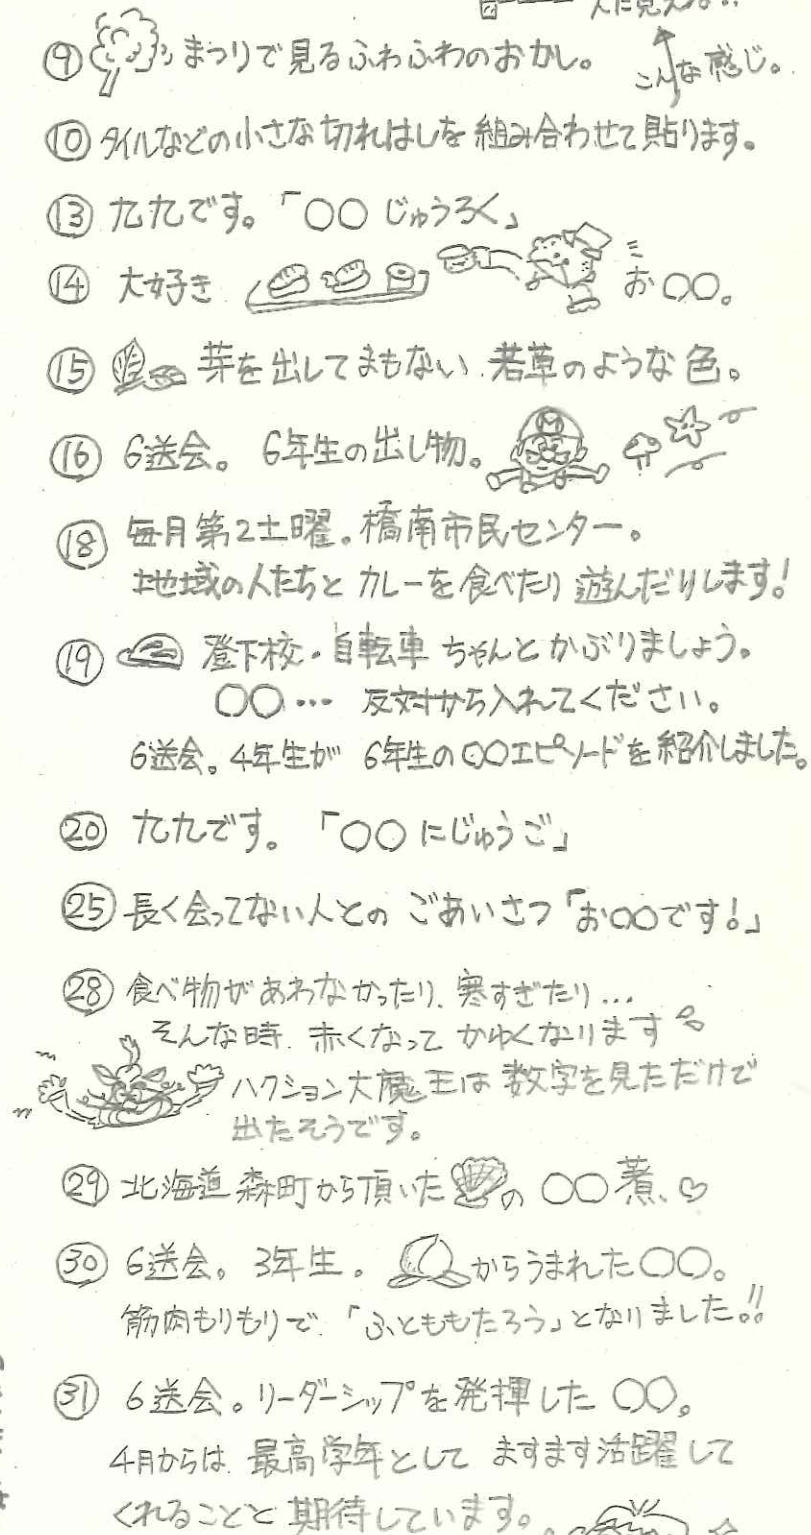 人に見え
⑨ まつりで見るふわふわのおかし。 こんな感じ。
⑩ タイルなどの小さな切れはしを組み合わせて貼ります。
⑬ 九九です。「〇〇 じゅうろく」
⑭ 大好き お〇〇。
⑮ 芽を出してまもない 若草のような色。
⑯ 6送会。 6年生の出し物。
M
⑱ 毎月第2土曜。橋南市民センター。
地域の人たちと カレーを食べたり 遊んだりします!
⑲ 登下校・自転車 ちゃんとかぶりましょう。
〇〇… 反対から入れてください。
6送会。4年生が 6年生の〇〇エピソードを紹介しました。
⑳ 九九です。 「〇〇 にじゅうご」
㉕ 長く会ってない人との ごあいさつ「お〇〇です!」
㉘ 食べ物があわなかったり、寒すぎたり…
そんな時、赤くなって かゆくなります
ハクション大魔王は 数字を見ただけで
出たそうです。
㉙ 北海道 森町から頂いた の 〇〇煮、♡
㉚ 6送会。3年生。 からうまれた〇〇。
筋肉もりもりで、「ふとももたろう」となりました!!
㉛ 6送会。リーダーシップを発揮した 〇〇。
4月からは、最高学年として ますます活躍して
くれることと 期待しています。